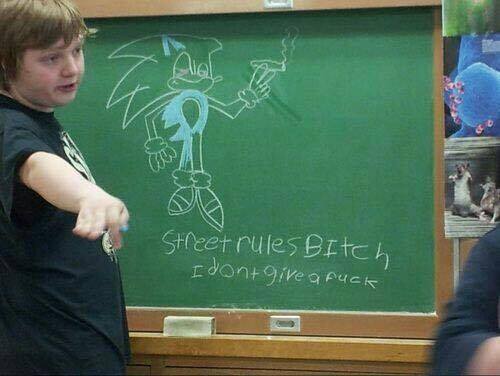 Street rules BItch
I dont give a Fuck